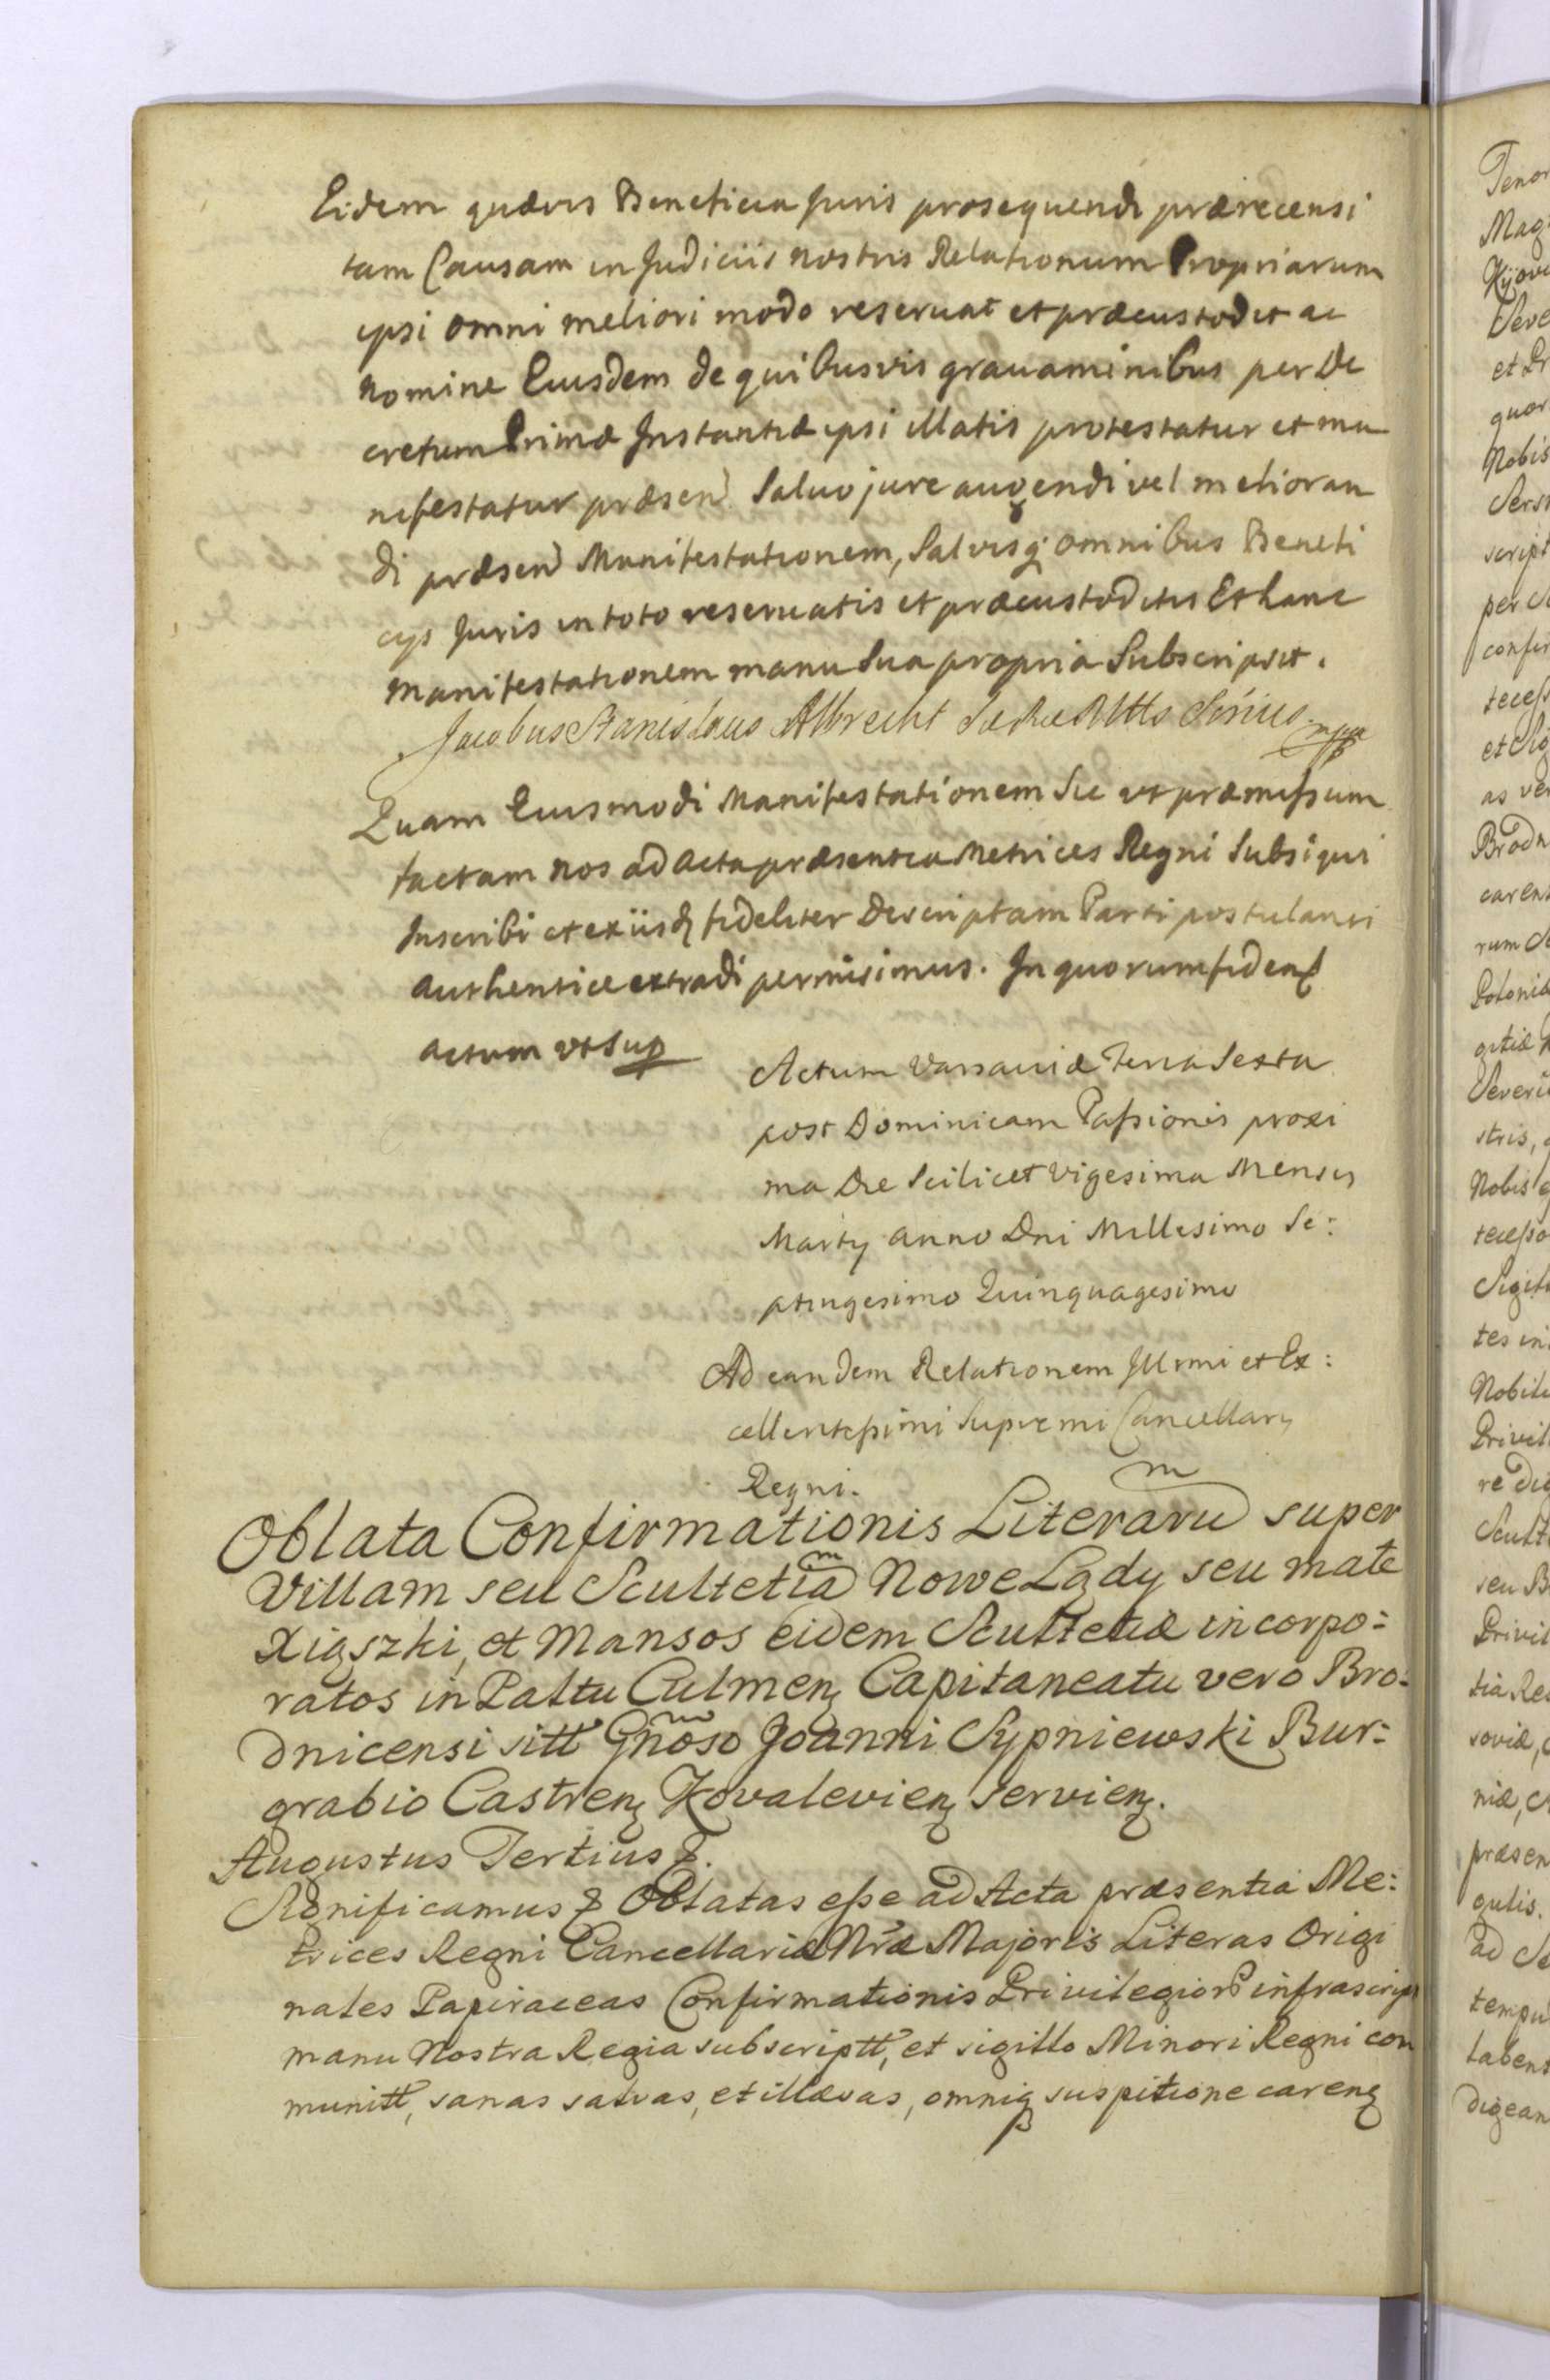 Eidem quævis Beneficia Juris prosequendi prærecensi
tam Causam in Judiciis nostris Relationum Propriarum
ipsi omni meliori modo reservat et præcustodit ac
nomine Eiusdem de quibusvis gravaminibus per De
cretum Primæ Instantiæ ipsi illatis protestatur et ma
nifestatur præsen Salvo jure augendi vel melioran
di præsen Manifestationem, Salvisq omnibus Benefi
cys Juris in toto reservatis et præcustoditis Et hanc
manifestationem manu Sua propria Subscripsit.
Jacobus Stanislaus Albrecht SacRaeMttis Srius mpp
Quam Eiusmodi Manifestationem Sic ut præmissum
factam nos ad acta præsentia Metrices Regni Subsigni
Inscribi et ex iisd fideliter Descriptam Parti postulanti
authentice extradi permisimus. In quorum fidem
actum ut Sup
Actum Varsaviæ Feria Sexta
post Dominicam Passionis proxi
ma Die Scilicet vigesima Mensis
Marty anno Dni Millesimo Se:
ptingesimo Quinquagesimo
Ad eandem Relationem Illrmi et Ex:
cellentissimi Supremi Cancellary
Regni.
Oblata Confirmationis Literarum super
Villam seu Scultetiam Nowe Lądy seu małe
Xiąszki, et Mansos eidem Scultetiæ incorpo:
ratos in Paltu Culmen Capitaneatu vero Bro:
dnicensi sitt Gnoso Joanni Sypniewski Bur:
grabio Castren Kovalevien servien.
Augustus Tertius &.
Significamus & Oblatas esse ad Acta præsentia Me:
trices Regni Cancellariæ Nræ Majoris Literas Origi
nales Papiraceas Confirmationis Privilegior infrascript
manu Nostra Regia subscriptt, et sigillo Minori Regni com
munitt, sanas salvas, et illæsas, omniq suspitione caren